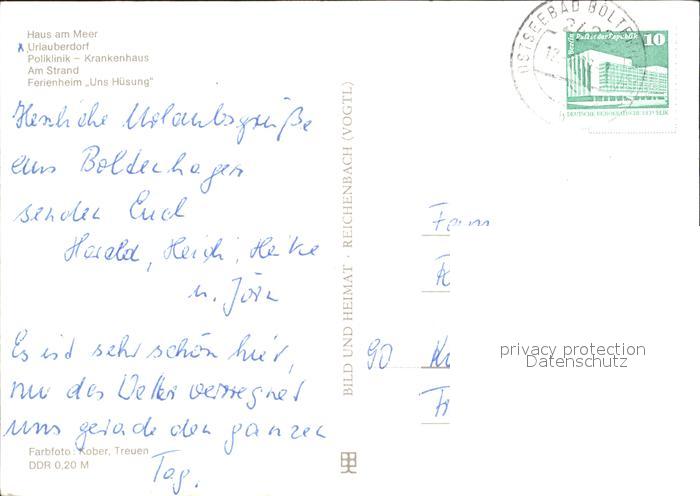 Haus am Meer
x Urlauberdorf
Poliklinik – Krankenhaus
Am Strand
Ferienheim „Uns Hüsung"
Herzliche Urlaubsgrüße
aus Boltenhagen
senden Euch
Harald, Heidi, Heike
u. Jörn
Es ist sehr schön hier,
nur das Wetter verregnet
uns gerade den ganzen
Tag.
Farbfoto: Kober, Treuen
DDR 0,20 M
BILD UND HEIMAT · REICHENBACH (VOGTL)
OSTSEEBAD BOLTEN
Berlin Palast der Republik
10
DEUTSCHE DEMOKRATISCHE REPUBLIK
Fam
90
privacy protection
Datenschutz